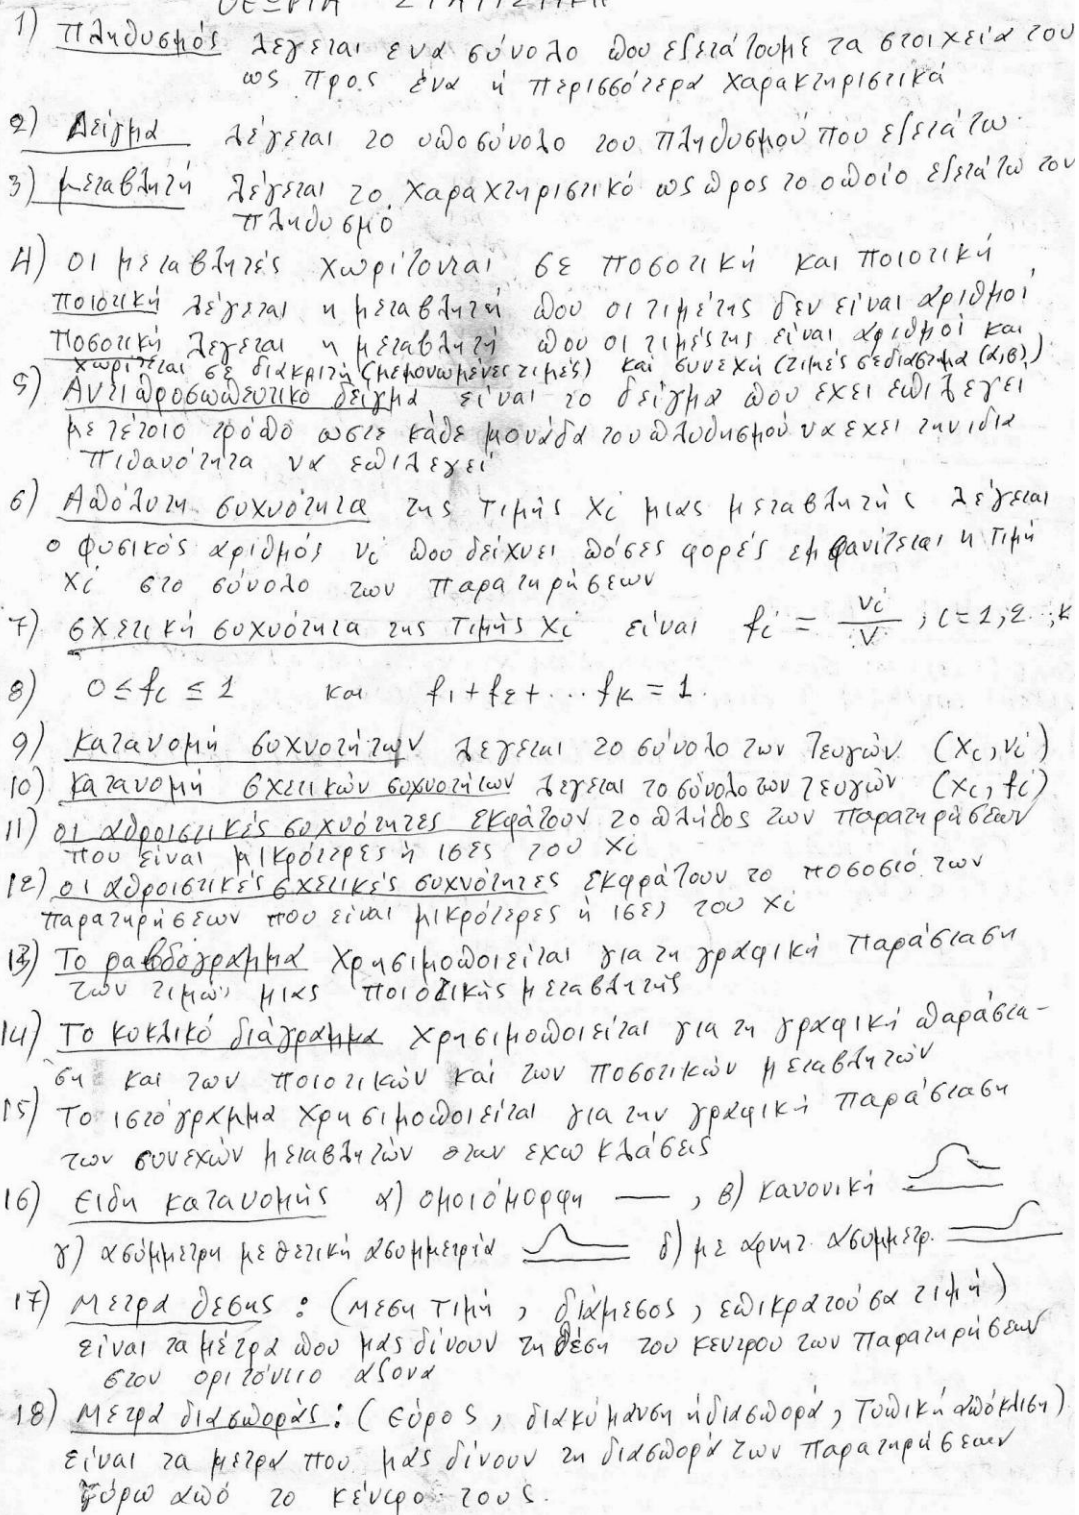 ΘΕΩΡΙΑ ΣΤΑΤΙΣΤΙΚΗ
1) Πληθυσμός λέγεται ενα σύνολο που εξετάζουμε τα στοιχεία του
ως προς ένα ή περισσότερα χαρακτηριστικά
2) Δείγμα λέγεται το υποσύνολο του πληθυσμού που εξετάζω.
3) μεταβλητή λέγεται το χαραχτηριστικό ως προς το οποίο εξετάζω τον
πληθυσμό
4) οι μεταβλητές χωρίζονται σε ποσοτική και ποιοτική
ποιοτική λέγεται η μεταβλητή που οι τιμές της δεν είναι αριθμοί
Ποσοτική λεγεται η μεταβλητή που οι τιμές της είναι αριθμοί και
χωρίζεται σε διακριτή (μεμονωμένες τιμές) και συνεχή (τιμές σε διαστημα (α,β))
5) Αντιπροσωπευτικό δείγμα είναι το δείγμα που έχει επιλεγεί
με τέτοιο τρόπο ωστε κάθε μονάδα του πλυθησμού να εχει την ιδια
πιθανότητα να επιλεγεί
6) Απόλυτη συχνότητα της τιμής xi μιας μεταβλητής λέγεται
ο φυσικός αριθμός νi που δείχνει πόσες φορές εμφανίζεται η τιμή
xi στο σύνολο των παρατηρήσεων
7) σχετική συχνότητα της τιμής xi είναι fi = νi/ν , i=1,2..,κ
8) 0≤fi≤1 και f1+f2+...fκ=1.
9) κατανομή συχνοτήτων λεγεται το σύνολο των ζευγών (xi,νi)
10) κατανομή σχετικών συχνοτήτων λεγεται το σύνολο των ζευγών (xi,fi)
11) οι αθροιστικές συχνότητες εκφάζουν το πλήθος των παρατηρήσεων
που είναι μικρότερες ή ισες του xi
12) οι αθροιστικές σχετικές συχνότητες εκφράζουν το ποσοσιό των
παρατηρήσεων που είναι μικρότερες ή ισες του xi
13) Το ραβδόγραμμα χρησιμοποιείται για τη γραφική παράσταση
των τιμών μιας ποιοτικής μεταβλητής
14) Το κυκλικό διάγραμμα χρησιμοποιείται για τη γραφική παράστα-
ση και των ποιοτικών και των ποσοτικών μεταβλητών
15) Το ιστόγραμμα χρησιμοποιείται για την γραφική παράσταση
των συνεχών μεταβλητών οταν εχω κλάσεις
16) ειδη κατανομής α) ομοιόμορφη , β) κανονική
γ) ασύμμετρη με θετική ασυμμετρία δ) με αρνητ. ασυμμετρ.
17) Μετρα θεσης : (μεση τιμή , διάμεσος , επικρατούσα τιμή)
είναι τα μέτρα που μας δίνουν τη θέση του κεντρου των παρατηρήσεων
στον οριζόντιο αξονα
18) Μετρα διασποράς : ( εύρος , διακύμανση ή διασπορά , Τυπική απόκλιση)
είναι τα μετρα που μας δίνουν τη διασπορά των παρατηρήσεων
γύρω από το κέντρο τους.